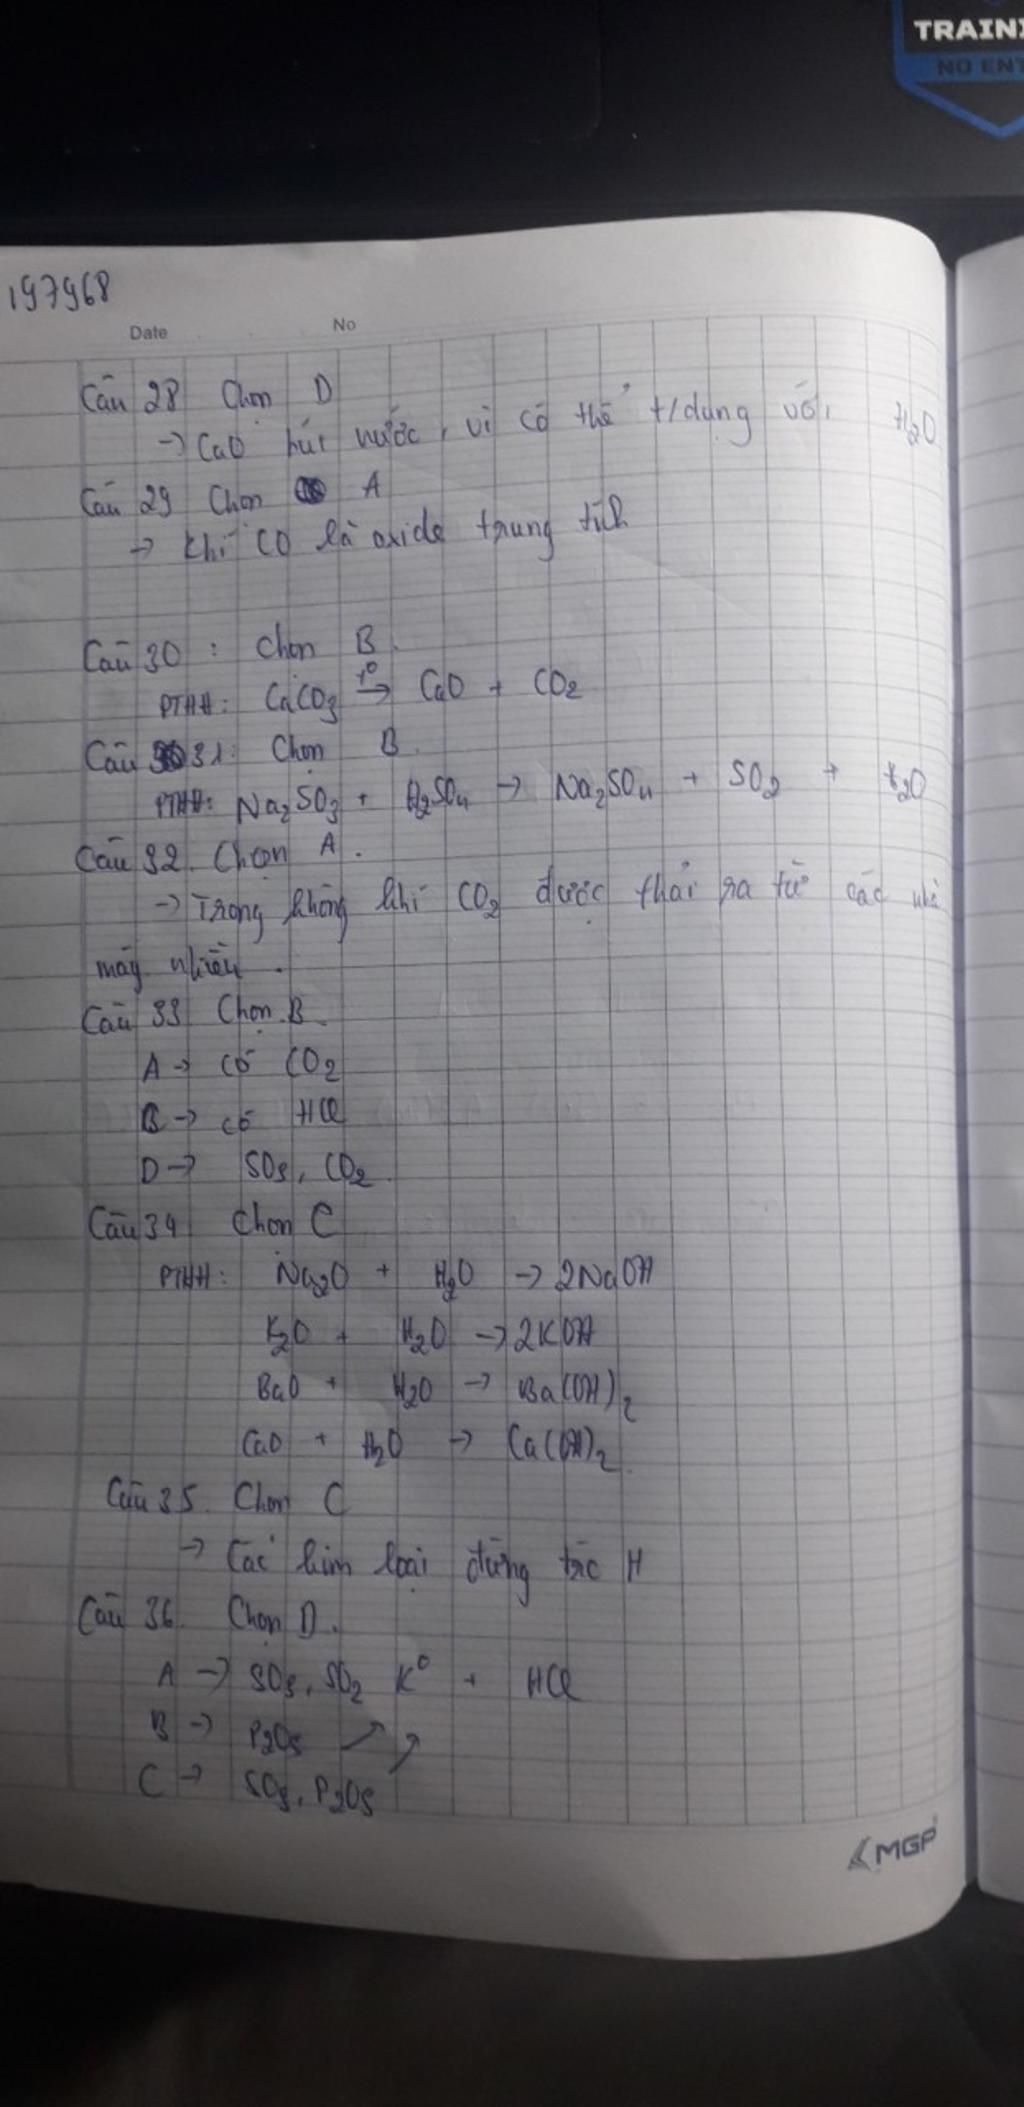 TRAINI
NO ENT
197968
Date No
Câu 28 Chọn D
→ CaO hút nước, vì có thể t/dụng với H₂O
Câu 29 Chọn A
→ Khí CO là oxide trung tính
Câu 30 : Chọn B.
PTHH: CaCO₃ t°→ CaO + CO₂
Câu 31: Chọn B.
PTHH: Na₂SO₃ + H₂SO₄ → Na₂SO₄ + SO₂ + H₂O
Câu 32. Chọn A.
→ Trong không khí CO₂ được thải ra từ các nhà
máy nhiều.
Câu 33 Chọn B.
A → có CO₂
B → có HCl
D → SO₃, CO₂.
Câu 34 Chọn C
PTHH: Na₂O + H₂O → 2NaOH
K₂O + H₂O → 2KOH
BaO + H₂O → Ba(OH)₂
CaO + H₂O → Ca(OH)₂
Câu 35. Chọn C
→ Các kim loại đứng trc H
Câu 36. Chọn D.
A → SO₃, SO₂ K° + HCl
B → P₂O₅ ↗
C → SO₃, P₂O₅ ↗
MGP